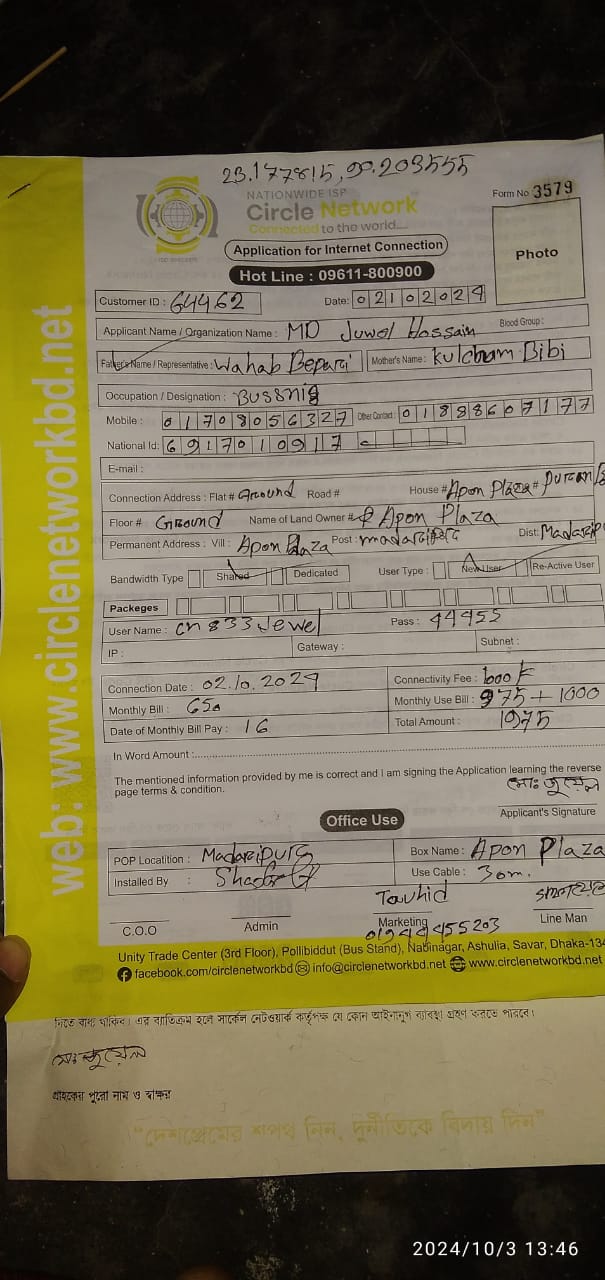 23.177815, 90.203555
NATIONWIDE ISP
Circle Network
Connected to the world....
Form No 3579
Application for Internet Connection
Photo
Hot Line : 09611-800900
Customer ID : 64462 Date: 02102024
Applicant Name / Organization Name : MD Juwel Hossain Blood Group :
Father's Name / Representative : Wahab Bepari Mother's Name : Kulchum Bibi
Occupation / Designation : Bussnig
Mobile : 01708056327 Other Contact : 01898607177
National Id: 6917010917
E-mail :
Connection Address : Flat # Ground Road # House # Apon Plaza # Puran
Floor # Ground Name of Land Owner # Apon Plaza
Permanent Address : Vill : Apon Plaza Post : Dist: Madarip
Bandwidth Type Shared Dedicated User Type : New User Re-Active User
Packeges
User Name : cn833Jewel Pass : 44455
IP : Gateway : Subnet :
Connection Date : 02.10.2024 Connectivity Fee : 1000
Monthly Bill : 650 Monthly Use Bill : 975 + 1000
Date of Monthly Bill Pay : 16 Total Amount : 1975
In Word Amount :
The mentioned information provided by me is correct and I am signing the Application learning the reverse
page terms & condition.
মোঃ জুয়েল
Applicant's Signature
Office Use
POP Locatition : Madaripur Box Name : Apon Plaza
Installed By : Use Cable : 30m.
Tawhid
C.O.O Admin Marketing Line Man
Unity Trade Center (3rd Floor), Pollibiddut (Bus Stand), Nabinagar, Ashulia, Savar, Dhaka-134
facebook.com/circlenetworkbd info@circlenetworkbd.net www.circlenetworkbd.net
web: www.circlenetworkbd.net
দিতে বাধ্য থাকিব। এর ব্যতিক্রম হলে সার্কেল নেটওয়ার্ক কর্তৃপক্ষ যে কোন আইনানুগ ব্যাবস্থা গ্রহণ করতে পারবে।
মোঃ জুয়েল
গ্রাহকের পুরো নাম ও স্বাক্ষর
"দেশপ্রেমের শপথ নিন, দুর্নীতিকে বিদায় দিন"
2024/10/3 13:46